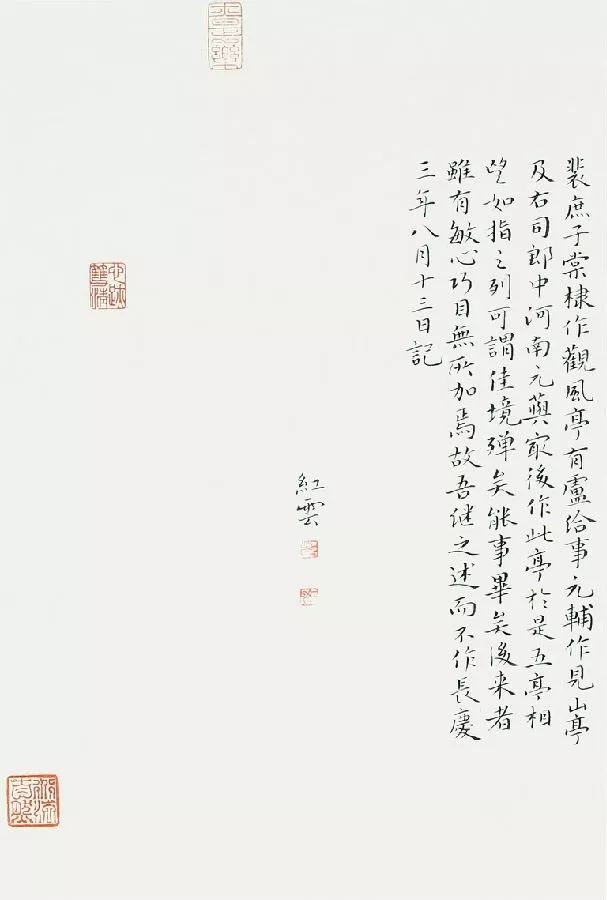 裴庶子棠棣作觀風亭有盧給事元輔作見山亭
及右司郎中河南元藇㝡後作此亭於是五亭相
望如指之列可謂佳境殫矣能事畢矣後来者
雖有敏心巧目無所加焉故吾继之述而不作長慶
三年八月十三日記
紅雲
心跡雙清